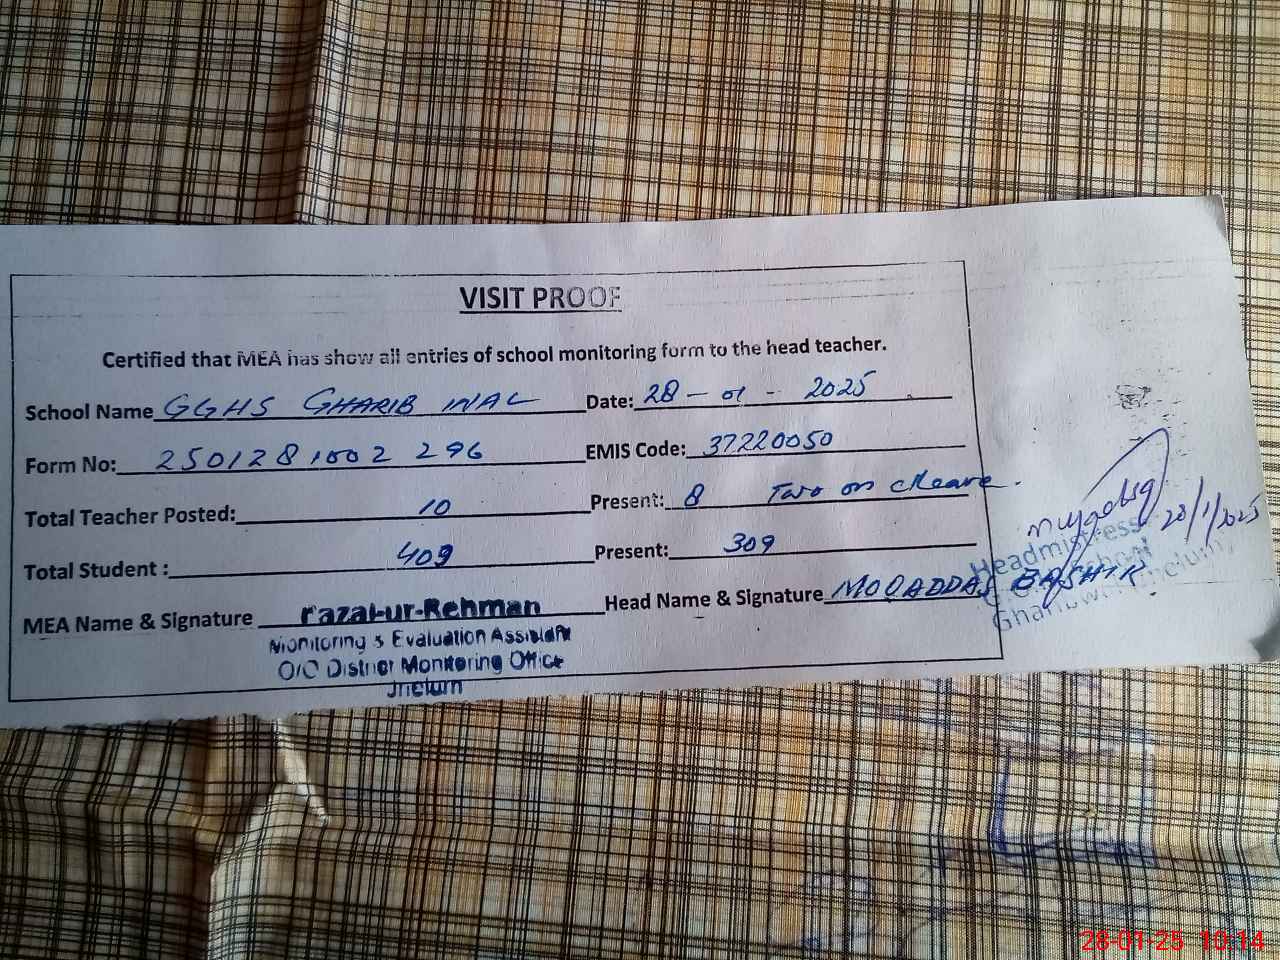 VISIT PROOF
Certified that MEA has show all entries of school monitoring form to the head teacher.
School Name GGHS GHARIB WAL Date: 28 - 01 - 2025
Form No: 2501281002 296 EMIS Code: 37220050
Total Teacher Posted: 10 Present: 8 Two on cleave.
Total Student : 409 Present: 309
MEA Name & Signature Fazal-ur-Rehman Head Name & Signature MOQADDAS BASHIR
Monitoring & Evaluation Assistant
O/O District Monitoring Office
Jhelum
28/1/2025
Headmistress
28-01-25 10:14